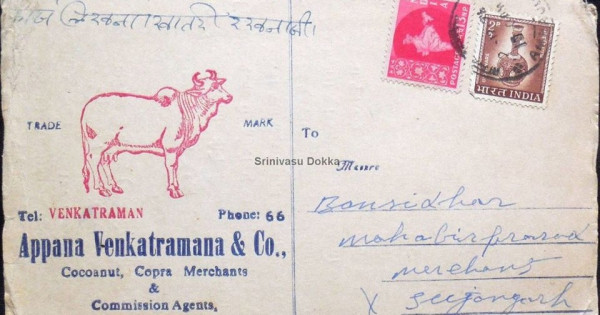 TRADE MARK
Tel: VENKATRAMAN Phone: 66
Appana Venkatramana & Co.,
Cocoanut, Copra Merchants
&
Commission Agents,
POSTAGE
भारत INDIA
Srinivasu Dokka
To
Messrs
Bansidhar
mahabirprasad
merchant
X Sujangarh